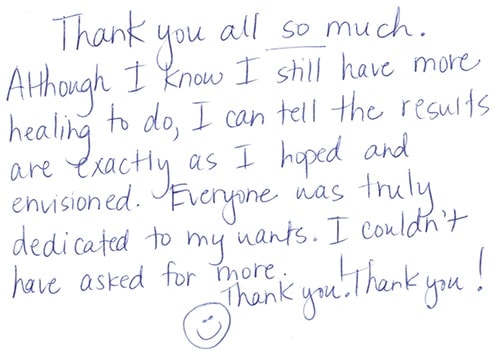 Thank you all so much.
Although I know I still have more
healing to do, I can tell the results
are exactly as I hoped and
envisioned. Everyone was truly
dedicated to my wants. I couldn't
have asked for more.
Thank you! Thank you!